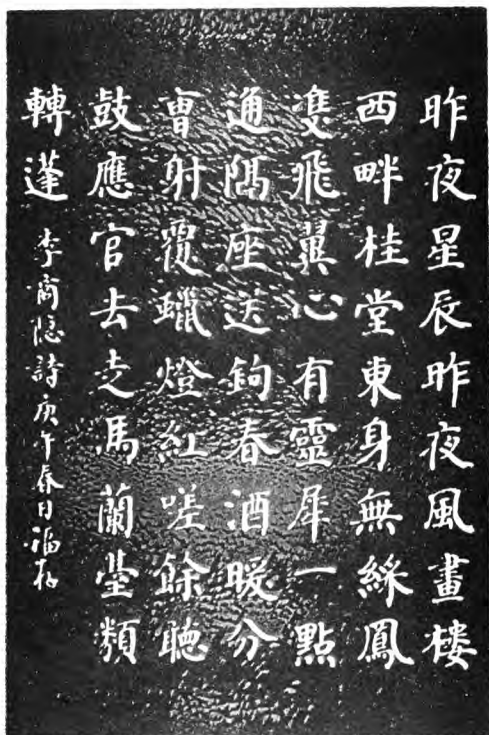 昨夜星辰昨夜風畫樓
西畔桂堂東身無綵鳳
雙飛翼心有靈犀一點
通隔座送鉤春酒暖分
曹射覆蠟燈紅嗟餘聽
鼓應官去走馬蘭臺類
轉蓬 李商隱詩庚午春日福